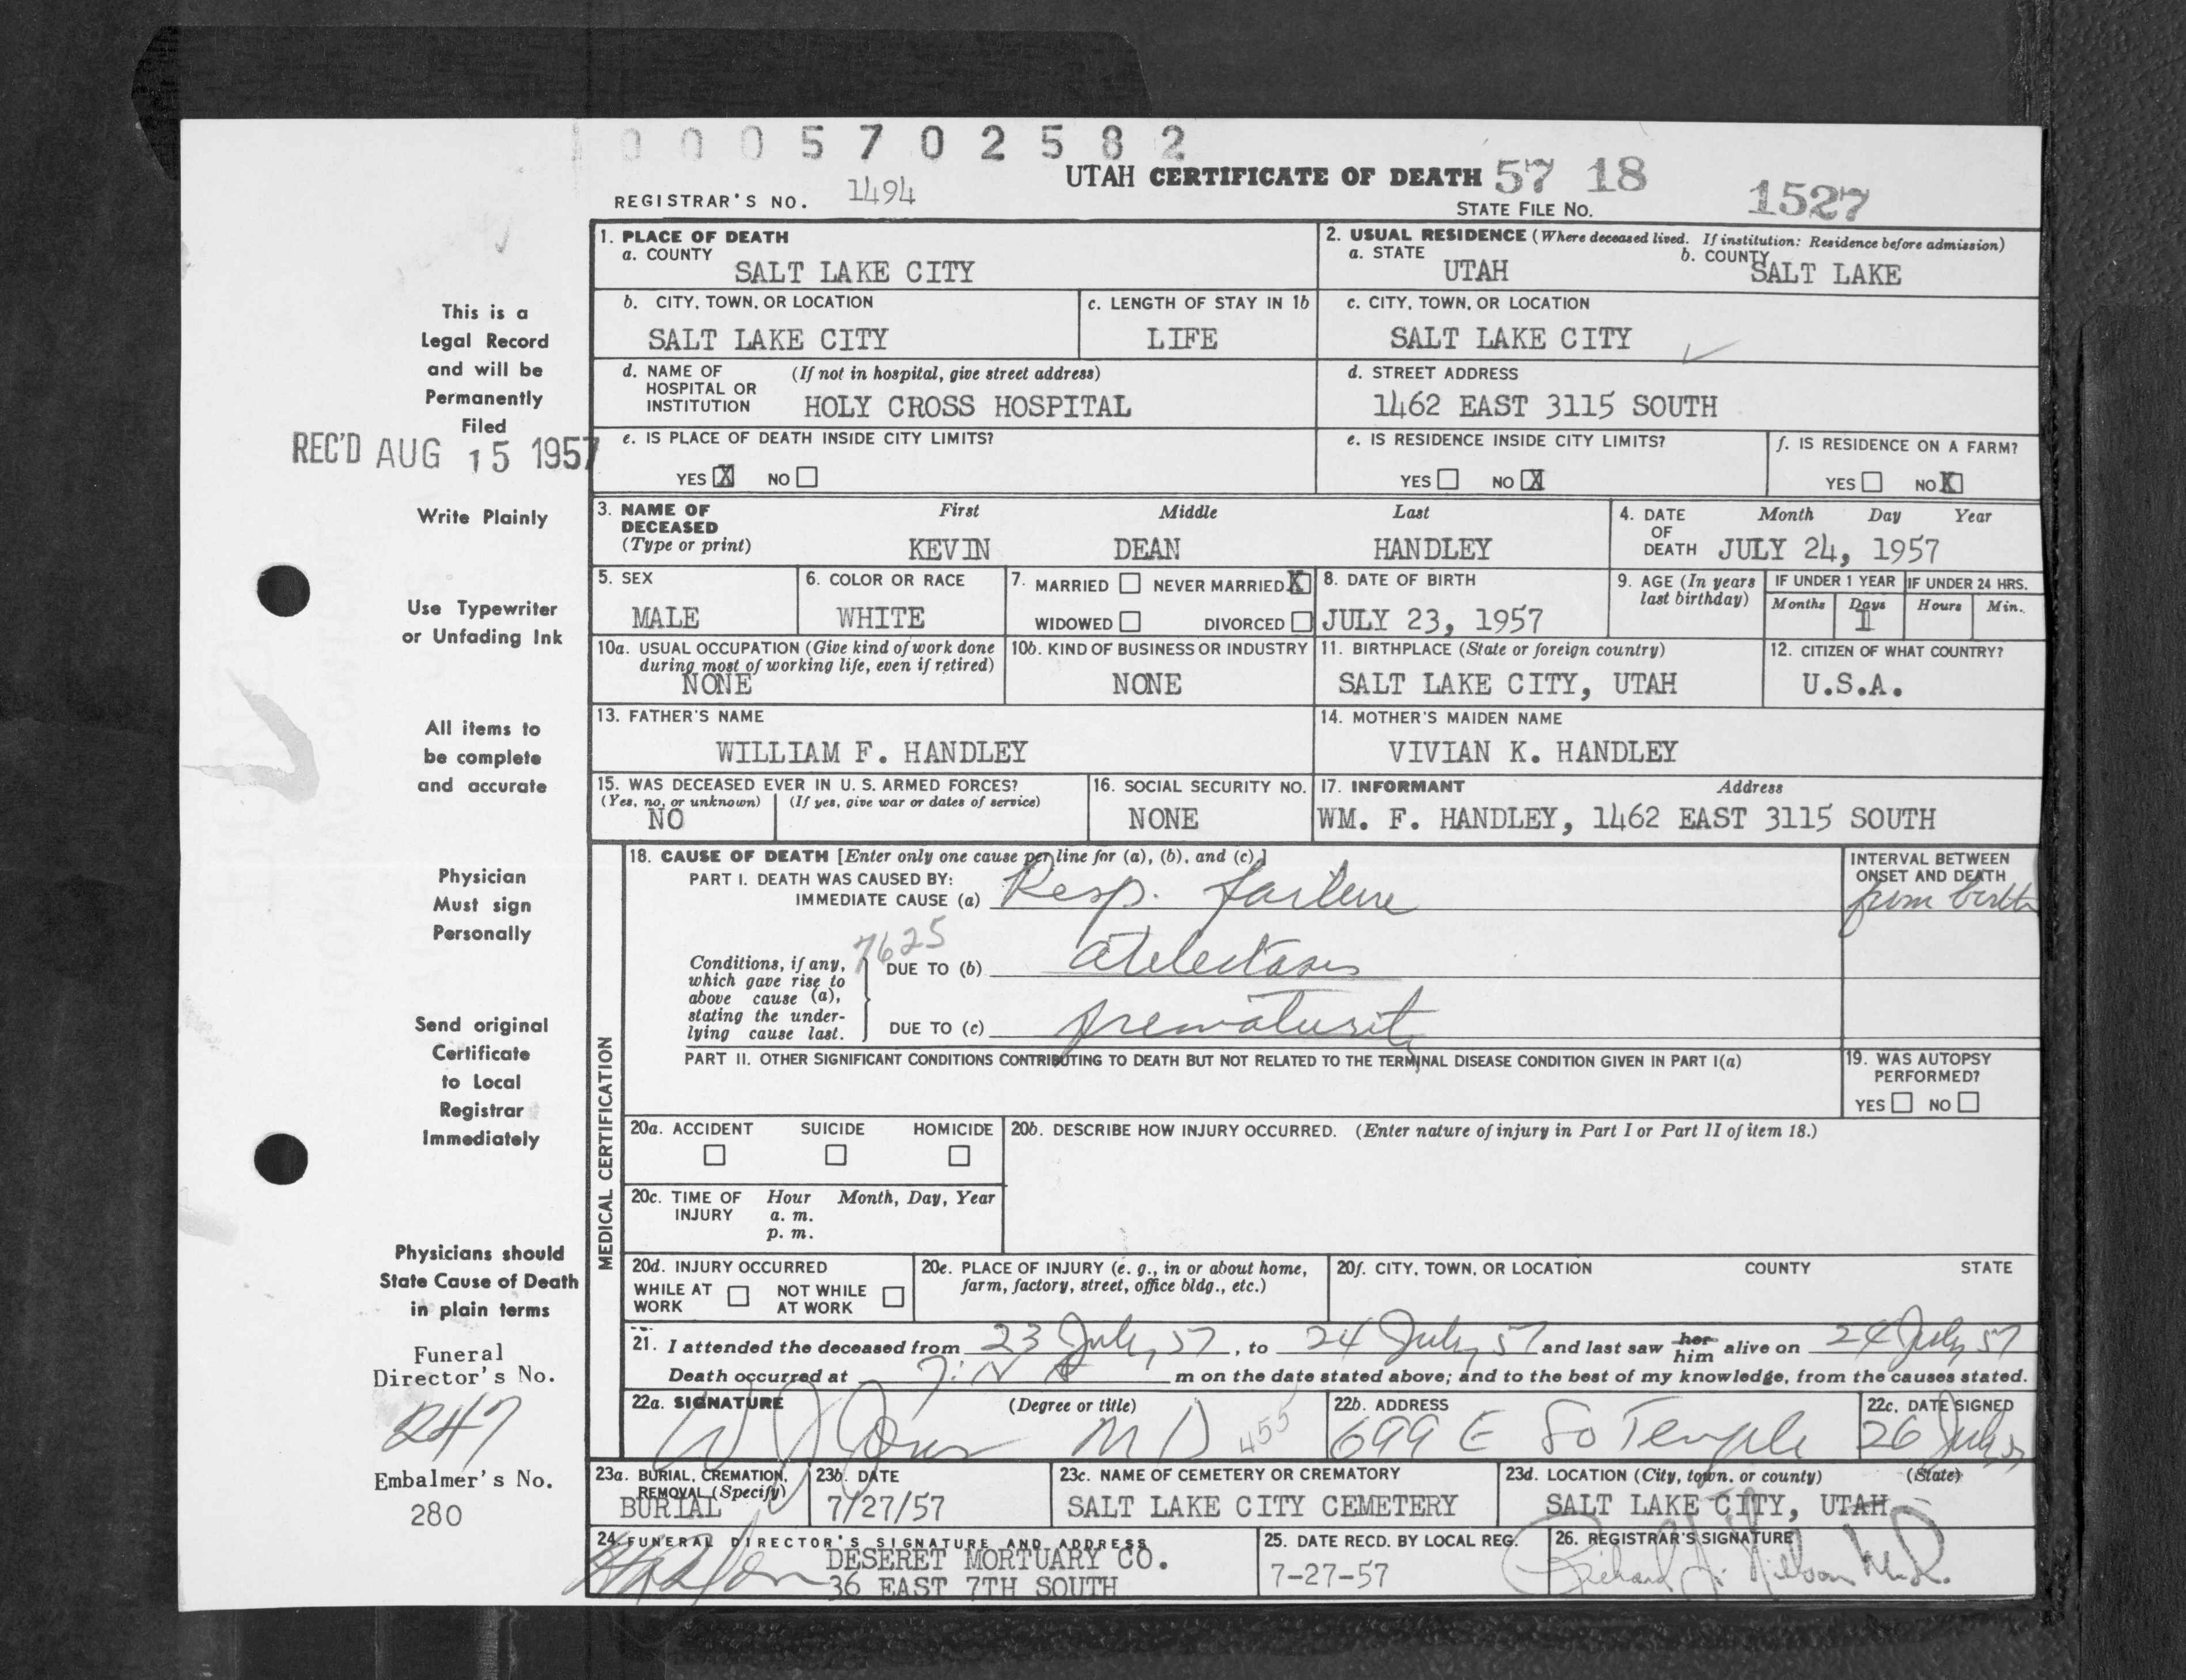 0005702582
UTAH CERTIFICATE OF DEATH 57 18 1527
REGISTRAR'S NO. 1494
STATE FILE NO.
1. PLACE OF DEATH
a. COUNTY
SALT LAKE CITY
2. USUAL RESIDENCE (Where deceased lived. If institution: Residence before admission)
a. STATE UTAH b. COUNTY SALT LAKE
b. CITY, TOWN, OR LOCATION
SALT LAKE CITY
c. LENGTH OF STAY IN 1b
LIFE
c. CITY, TOWN, OR LOCATION
SALT LAKE CITY
d. NAME OF (If not in hospital, give street address)
HOSPITAL OR
INSTITUTION HOLY CROSS HOSPITAL
d. STREET ADDRESS
1462 EAST 3115 SOUTH
e. IS PLACE OF DEATH INSIDE CITY LIMITS?
YES X NO
e. IS RESIDENCE INSIDE CITY LIMITS?
YES NO X
f. IS RESIDENCE ON A FARM?
YES NO X
3. NAME OF First Middle Last
DECEASED
(Type or print) KEVIN DEAN HANDLEY
4. DATE Month Day Year
OF
DEATH JULY 24, 1957
5. SEX
MALE
6. COLOR OR RACE
WHITE
7. MARRIED NEVER MARRIED X
WIDOWED DIVORCED
8. DATE OF BIRTH
JULY 23, 1957
9. AGE (In years
last birthday)
IF UNDER 1 YEAR IF UNDER 24 HRS.
Months Days Hours Min.
1
10a. USUAL OCCUPATION (Give kind of work done
during most of working life, even if retired)
NONE
10b. KIND OF BUSINESS OR INDUSTRY
NONE
11. BIRTHPLACE (State or foreign country)
SALT LAKE CITY, UTAH
12. CITIZEN OF WHAT COUNTRY?
U.S.A.
13. FATHER'S NAME
WILLIAM F. HANDLEY
14. MOTHER'S MAIDEN NAME
VIVIAN K. HANDLEY
15. WAS DECEASED EVER IN U. S. ARMED FORCES?
(Yes, no, or unknown) (If yes, give war or dates of service)
NO
16. SOCIAL SECURITY NO.
NONE
17. INFORMANT Address
WM. F. HANDLEY, 1462 EAST 3115 SOUTH
MEDICAL CERTIFICATION
18. CAUSE OF DEATH [Enter only one cause per line for (a), (b), and (c).]
PART I. DEATH WAS CAUSED BY:
IMMEDIATE CAUSE (a) Resp. failure
INTERVAL BETWEEN
ONSET AND DEATH
from birth
7625
Conditions, if any,
which gave rise to
above cause (a),
stating the under-
lying cause last.
DUE TO (b) atelectasis
DUE TO (c) prematurity
PART II. OTHER SIGNIFICANT CONDITIONS CONTRIBUTING TO DEATH BUT NOT RELATED TO THE TERMINAL DISEASE CONDITION GIVEN IN PART I(a)
19. WAS AUTOPSY
PERFORMED?
YES NO
20a. ACCIDENT SUICIDE HOMICIDE
20b. DESCRIBE HOW INJURY OCCURRED. (Enter nature of injury in Part I or Part II of item 18.)
20c. TIME OF Hour Month, Day, Year
INJURY a. m.
p. m.
20d. INJURY OCCURRED
WHILE AT NOT WHILE
WORK AT WORK
20e. PLACE OF INJURY (e. g., in or about home,
farm, factory, street, office bldg., etc.)
20f. CITY, TOWN, OR LOCATION COUNTY STATE
21. I attended the deceased from 23 July, 57, to 24 July, 57 and last saw her him alive on 24 July, 57
Death occurred at m on the date stated above; and to the best of my knowledge, from the causes stated.
22a. SIGNATURE (Degree or title)
M D 455
22b. ADDRESS
699 E So Temple
22c. DATE SIGNED
26 July 57
23a. BURIAL, CREMATION,
REMOVAL (Specify)
BURIAL
23b. DATE
7/27/57
23c. NAME OF CEMETERY OR CREMATORY
SALT LAKE CITY CEMETERY
23d. LOCATION (City, town, or county) (State)
SALT LAKE CITY, UTAH
24. FUNERAL DIRECTOR'S SIGNATURE AND ADDRESS
DESERET MORTUARY CO.
36 EAST 7TH SOUTH
25. DATE RECD. BY LOCAL REG.
7-27-57
26. REGISTRAR'S SIGNATURE
Richard
This is a
Legal Record
and will be
Permanently
Filed
REC'D AUG 15 1957
Write Plainly
Use Typewriter
or Unfading Ink
All items to
be complete
and accurate
Physician
Must sign
Personally
Send original
Certificate
to Local
Registrar
Immediately
Physicians should
State Cause of Death
in plain terms
Funeral
Director's No.
247
Embalmer's No.
280